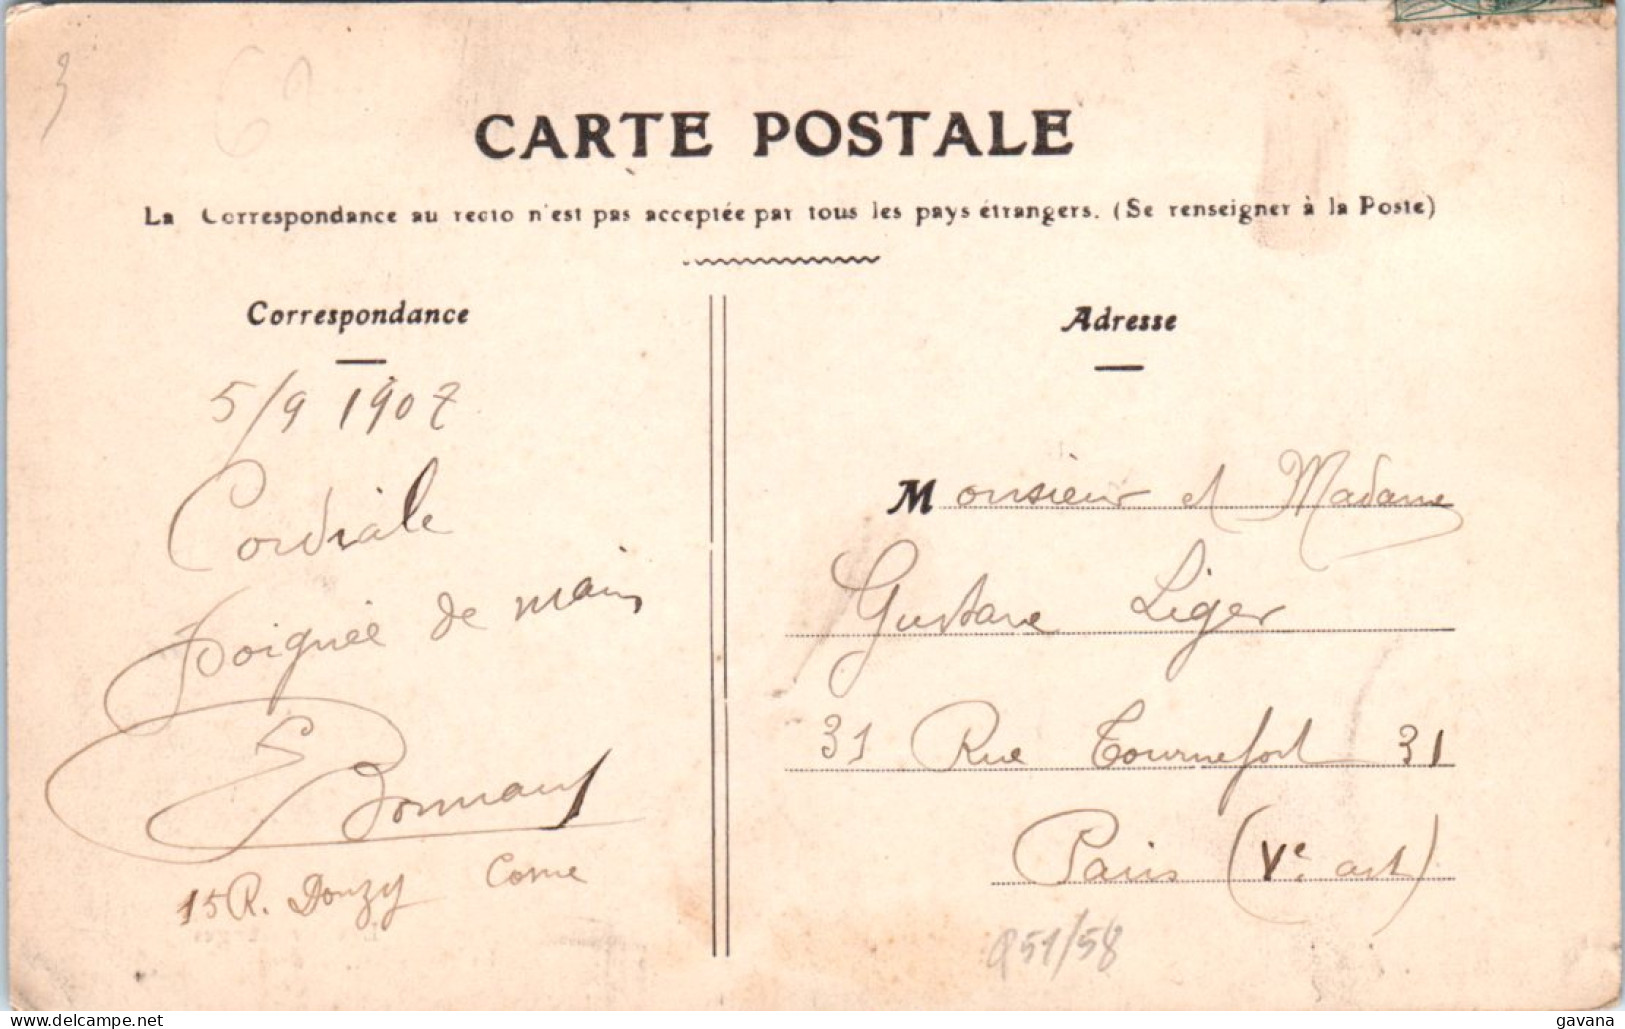 CARTE POSTALE
La Correspondance au recto n'est pas acceptée par tous les pays étrangers. (Se renseigner à la Poste)
Correspondance
5/9 1907
Cordiale
Poignée de main
15 R. Donzy Cosne
Adresse
Monsieur et Madame
Gustave Liger
31 Rue Tournefort 31
Paris (Ve art)
951/58
3
www.delcampe.net
gavana